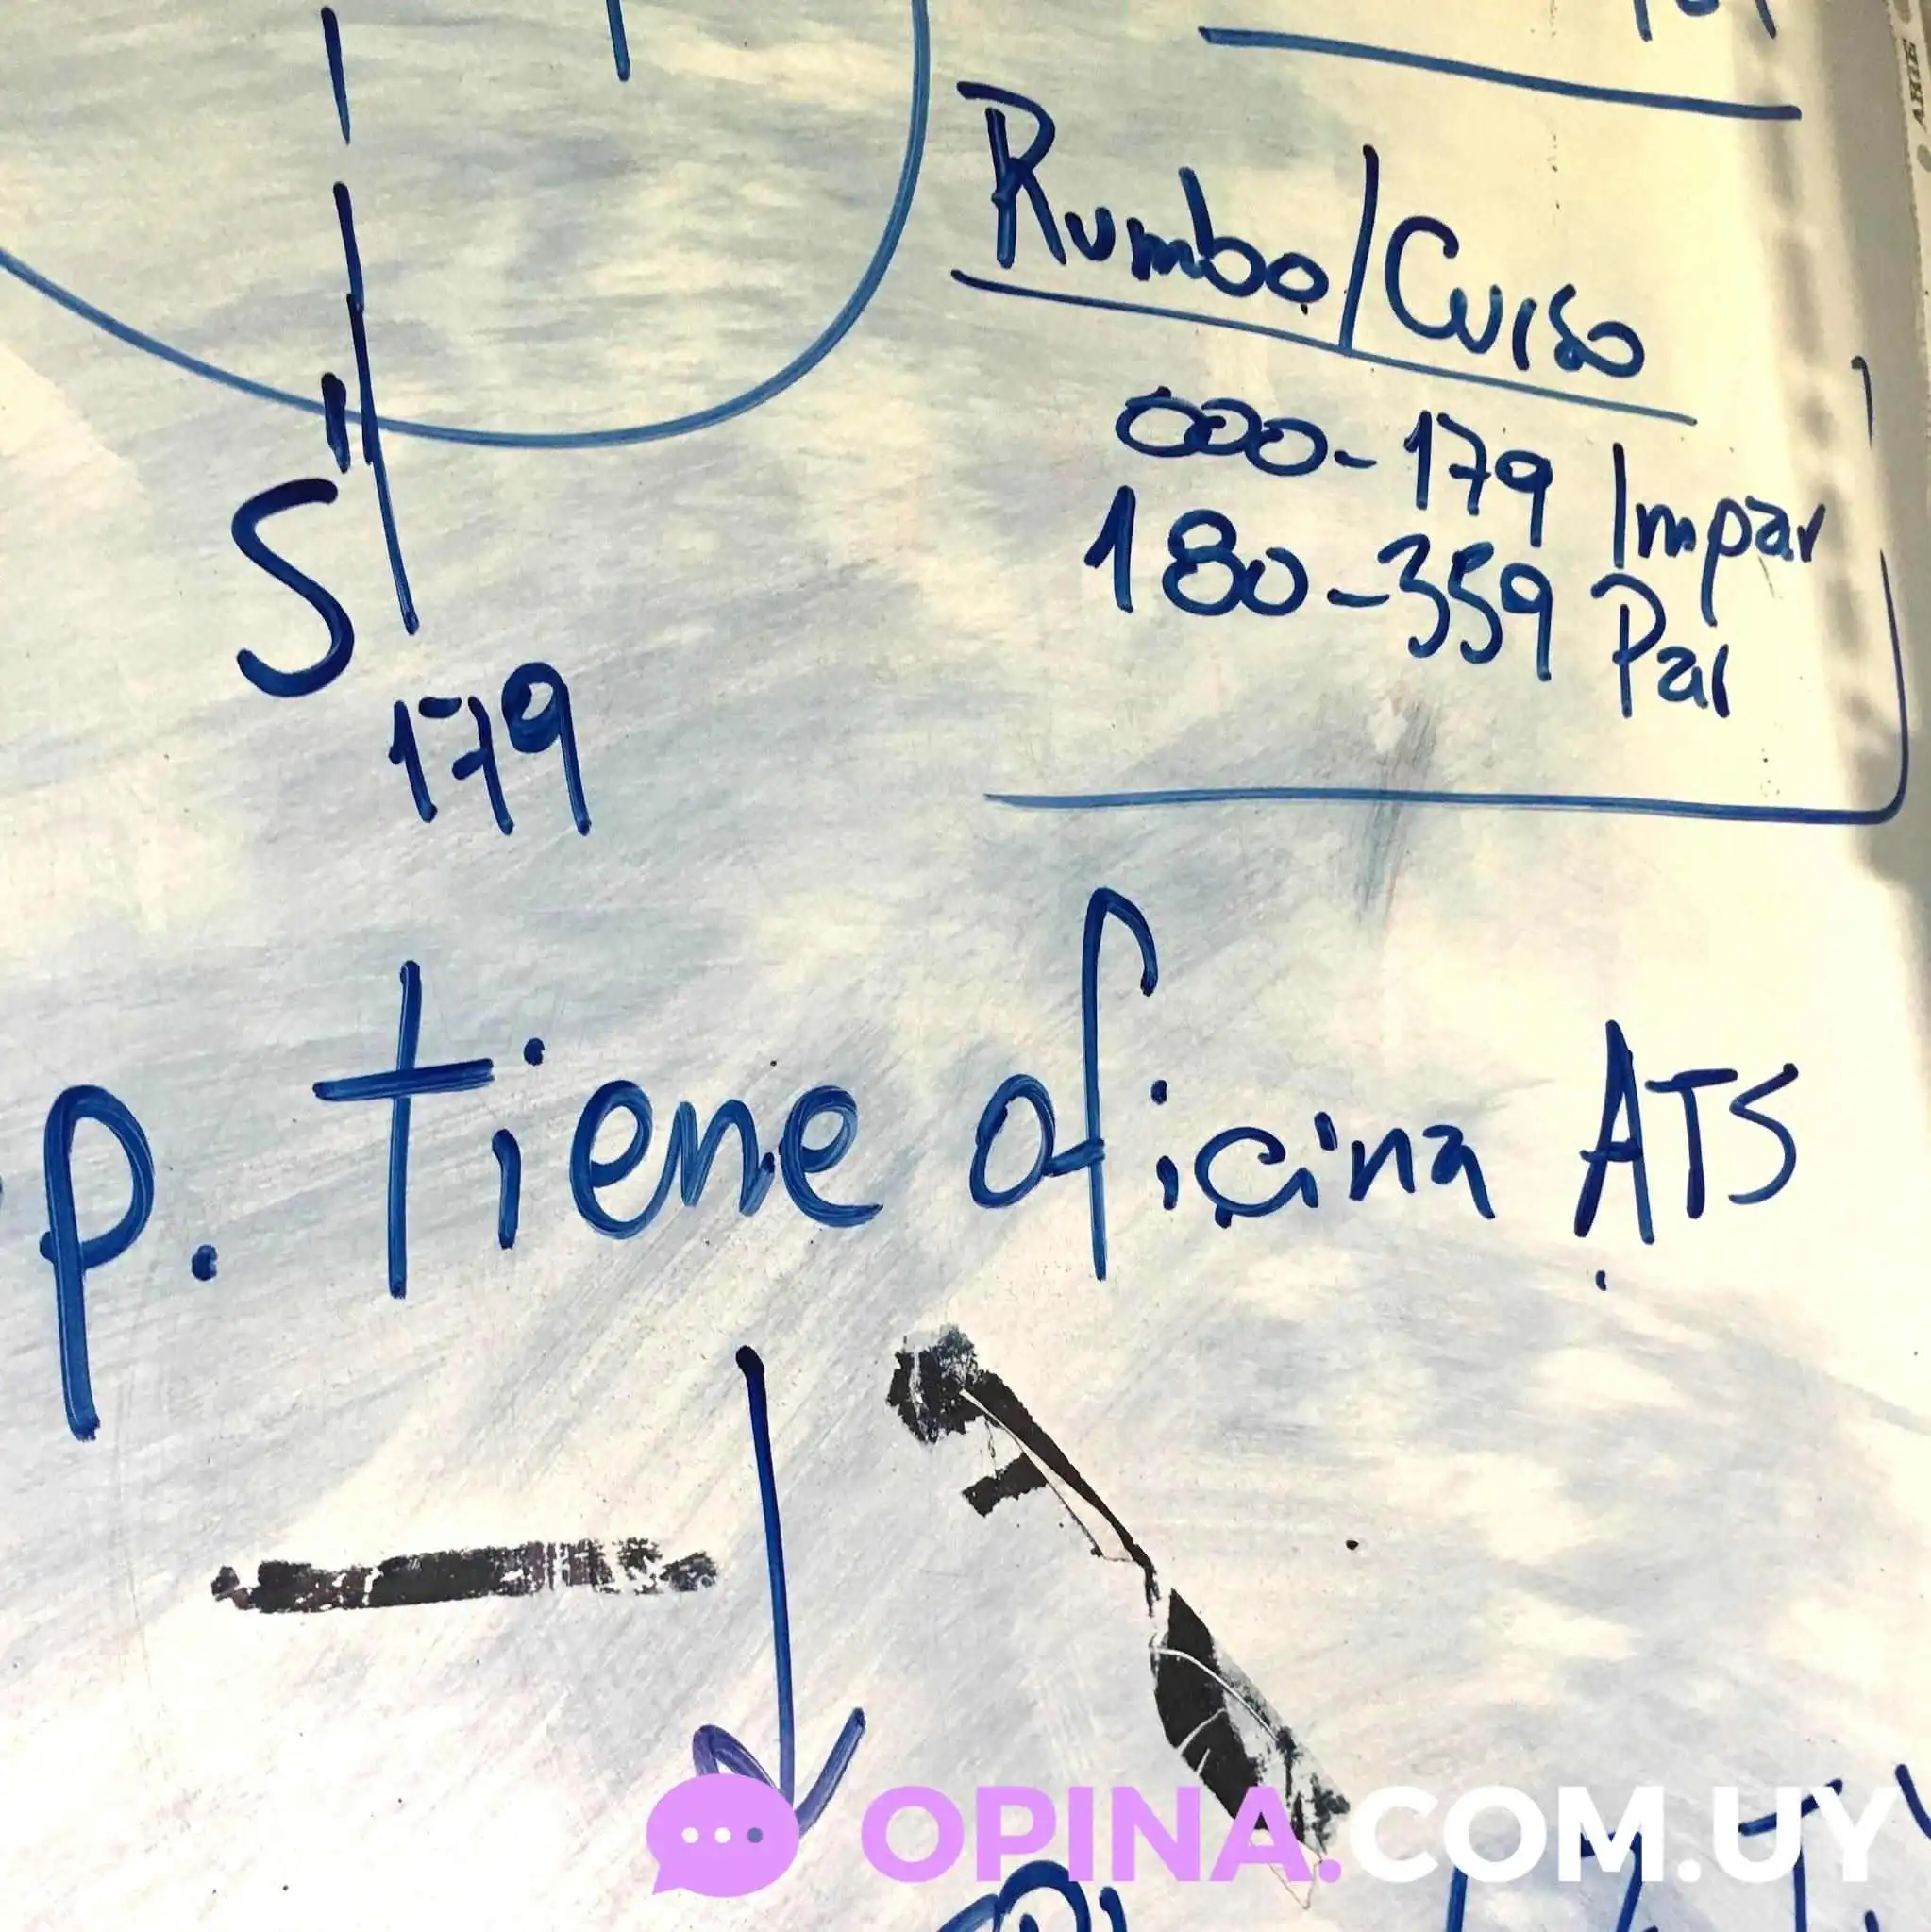 Rumbo/Curso
000-179 Impar
180-359 Par
S
179
p. tiene oficina ATS
OPINA.COM.UY